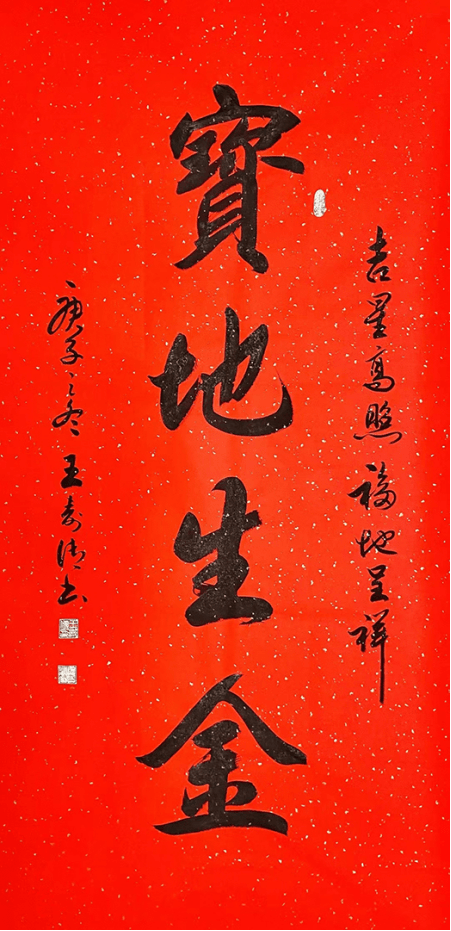 吉星高照福地呈祥
寶地生金
庚子之冬王寿清书